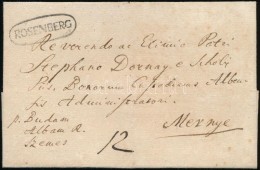 ROSENBERG
Reverendo ac Eximio Patri
Stephano Dornay e Scholis
Piis, Bonorum Custodiae Alben
sis Administratori.
p. Budam
Albam R.
Mernye
12